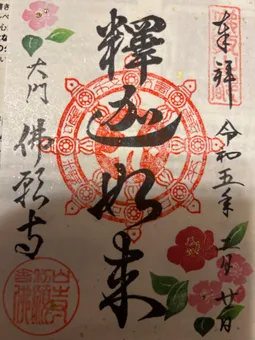 奉拝
令和五年
二月廿日
釋迦如来
大門
佛願寺